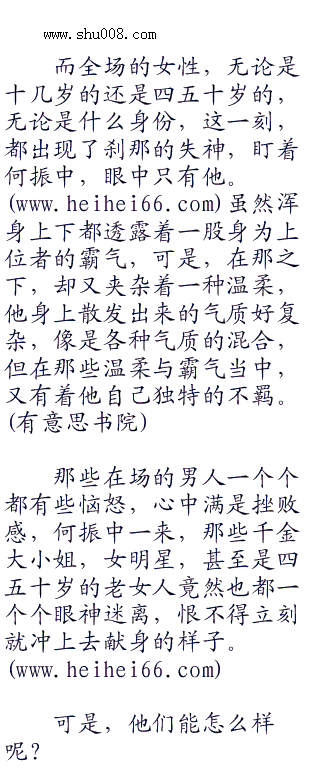 www.shu008.com
而全场的女性，无论是
十几岁的还是四五十岁的，
无论是什么身份，这一刻，
都出现了刹那的失神，盯着
何振中，眼中只有他。
(www.heihei66.com)虽然浑
身上下都透露着一股身为上
位者的霸气，可是，在那之
下，却又夹杂着一种温柔，
他身上散发出来的气质好复
杂，像是各种气质的混合，
但在那些温柔与霸气当中，
又有着他自己独特的不羁。
(有意思书院)
那些在场的男人一个个
都有些恼怒，心中满是挫败
感，何振中一来，那些千金
大小姐，女明星，甚至是四
五十岁的老女人竟然也都一
个个眼神迷离，恨不得立刻
就冲上去献身的样子。
(www.heihei66.com)
可是，他们能怎么样
呢？